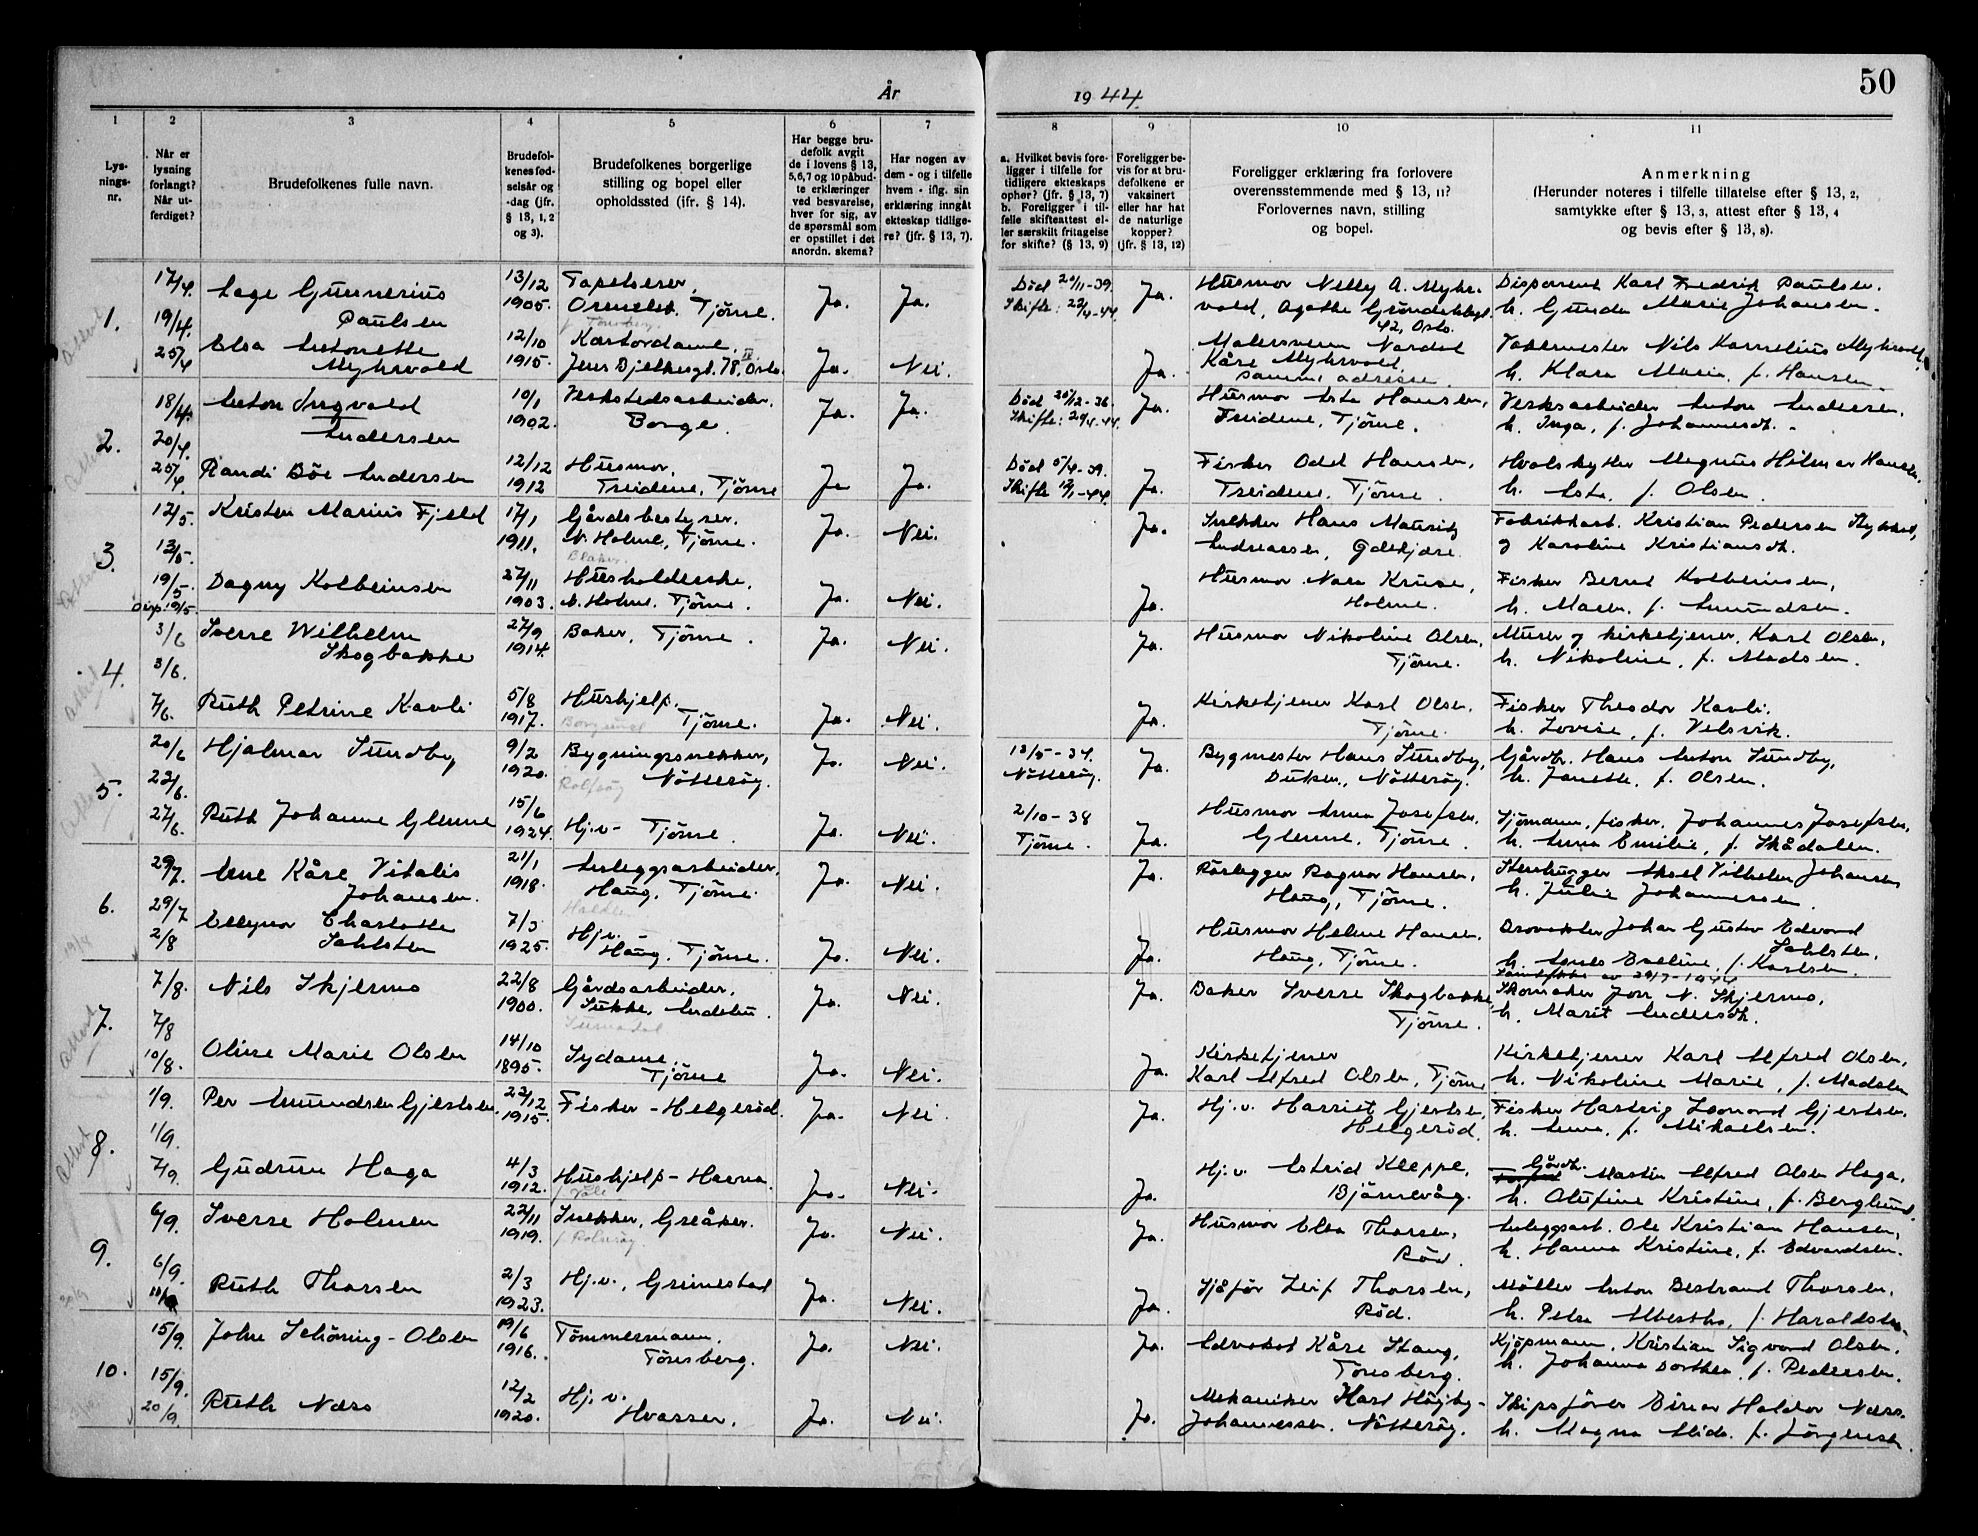 50
År 1944.
1 2 3 4 5 6 7 8 9 10 11
Lys-
nings-
nr.
Når er
lysning
forlangt?
Når ut-
ferdiget?
Brudefolkenes fulle navn.
Brudefol-
kenes fød-
selsår og
-dag (jfr.
§ 13, 1, 2
og 3).
Brudefolkenes borgerlige
stilling og bopel eller
opholdssted (ifr. § 14).
Har begge bru-
defolk avgit
de i lovens § 13,
5, 6, 7 og 10 påbud-
te erklæringer
ved besvarelse,
hver for sig, av
de spørsmål som
er opstillet i det
anordn. skema?
Har nogen av
dem - og i tilfelle
hvem - iflg. sin
erklæring inngåt
ekteskap tidlige-
re? (jfr. § 13, 7).
a. Hvilket bevis fore-
ligger i tilfelle for
tidligere ekteskaps
ophør? (jfr. § 13, 7)
b. Foreligger i til-
felle skifteattest el-
ler særskilt fritagelse
for skifte? (§ 13, 9)
Foreligger be-
vis for at bru-
defolkene er
vaksinert
eller har hat
de naturlige
kopper?
(jfr. § 13, 12)
Foreligger erklæring fra forlovere
overensstemmende med § 13, 11?
Forlovernes navn, stilling
og bopel.
Anmerkning
(Herunder noteres i tilfelle tillatelse efter § 13, 2,
samtykke efter § 13, 3, attest efter § 13, 4
og bevis efter § 13, 8).
1.
17/4.
19/4.
25/4
Aage Gunnerius
Paulsen
13/12
1905.
Tapetserer,
Ormelet, Tjöme.
f. Tönsberg.
Ja. Ja.
Död 20/11-39.
Skifte: 22/4-44.
Ja.
Husmor Nelly A. Myhr-
vold, Agathe Gröndahlsgt.
42, Oslo.
Disponent Karl Fredrik Paulsen.
h. Gunda Marie Johansen.
Elsa Antonette
Myhrvold
12/10
1915.
Kontordame,
Jens Bjelkesgt. 78 IV, Oslo.
Ja. Nei.
Ja.
Malersvenn Nordal
Kåre Myhrvold,
samme adresse.
Nils Kornelius Myhrvold,
h. Klara Marie, f. Hansen.
2.
18/4.
20/4.
25/4.
Anton Ingvald
Andersen
10/1
1902.
Verkstedsarbeider,
Borge.
Ja. Ja.
Död 20/12-36.
Skifte: 29/4-44.
Ja.
Husmor Asta Hansen,
Treidene, Tjöme.
Verksarbeider Anton Andersen,
h. Inga, f. Johannesdt.
Randi Böe Andersen
12/12
1912
Husmor,
Treidene, Tjöme
Ja Ja.
Död 5/4-39.
Skifte 12/1-44.
Ja.
Fisker Odd Hansen,
Treidene, Tjöme.
Hvalskytter Magnus Hilmar Hansen,
h. Asta, f. Olsen.
3.
12/5.
12/5.
19/5.
Disp. 19/5.
Kristen Marius Fjeld
17/1
1911.
Gårdsbestyrer.
N. Holme, Tjöme.
Blaker.
Ja. Nei.
Ja.
Snekker Hans Mauritz
Andreassen, Gdekjære.
Fabrikkarb. Kristian Pedersen
og Karoline Kristiansdt.
Dagny Kolbeinsen
27/11
1903.
Husholderske,
N. Holme, Tjöme.
Ja. Nei.
Ja.
Husmor Nora Kruse,
Holme.
Fisker Bernt Kolbeinsen,
h. Maren, f. Amundsen.
4.
3/6
3/6.
7/6.
Sverre Wilhelm
Skogbakke
27/9
1914.
Baker, Tjöme.
Ja. Nei.
Ja.
Husmor Nikoline Olsen,
Tjöme.
Murer og kirketjener, Karl Olsen,
h. Nikoline, f. Madsen.
Ruth Petrine Kavli
5/8
1917.
Hushjelp,
Borgund Tjöme.
Ja. Nei.
Ja.
Kirketjener Karl Olsen.
Tjöme.
Fisker Theodor Kavli.
h. Lovise, f. Velsvik.
5.
20/6
22/6.
27/6.
Hjalmar Sundby
9/2
1920.
Bygningssnekker,
Nötteröy.
Rolfsöy
Ja. Nei.
13/5-34.
Nötteröy.
Ja.
Bygmester Hans Sundby,
Duken, Nötteröy.
Gårdbr. Hans Anton Sundby,
h. Janette, f. Olsen.
Ruth Johanne Glenne
15/6
1924.
Hj.v- Tjöme.
Ja. Nei.
2/10-38
Tjöme.
Ja.
Husmor Anna Josefsen,
Glenne, Tjöme.
Sjömann, fisker, Johannes Josefsen,
h. Anna Emilie, f. Skådalen.
6.
29/7.
29/7
2/8
Arne Kåre Vitalis
Johansen.
21/1
1918.
Anleggsarbeider,
Haug, Tjöme.
Halden
Ja. Nei.
Ja.
Rörlegger Ragnar Hansen,
Haug, Tjöme.
Stenhugger Aksel Vilhelm Johansen
h. Julie Johannessen.
Ellynor Charlotte
Sahlsten
7/3
1925.
Hj.v.
Haug, Tjöme.
Ja. Nei.
Ja.
Husmor Helene Hansen.
Haug, Tjöme.
Johan Gustav Edvard
Sahlsten,
h. Agnes Eveline, f. Karlsen.
Samtykke av 29/7-1944
7.
7/8.
7/8
10/8.
Nils Skjermo
22/8
1900.
Gårdsarbeider,
Sukke, Andebu.
Surnadal
Ja. Nei.
Ja.
Baker Sverre Skogbakke,
Tjöme.
Skomaker Jon N. Skjermo,
h. Marit Andersdt.
Oline Marie Olsen
14/10
1895.
Sydame,
Tjöme
Ja. Nei.
Ja.
Kirketjener
Karl Alfred Olsen, Tjöme
Kirketjener Karl Alfred Olsen,
h. Nikoline Marie, f. Madsen
8.
1/9.
1/9.
7/9.
Per Amundsen Gjertsen
22/12
1915.
Fisker - Helgeröd.
Ja. Nei.
Ja.
Hj.v. Harriet Gjertsen,
Helgeröd.
Fisker Hartvig Leonard Gjertsen.
h. Anna, f. Mikaelsen.
Gudrun Haga
4/3
1912.
Hushjelp - Havna.
f. Våle
Ja. Nei.
Ja.
Hj.v. Astrid Kleppe,
Bjärnevåg.
Gårdbr. Martin Alfred Olsen Haga,
h. Olufine Kristine, f. Berglund.
9.
6/9.
6/9.
11/9
Sverre Holmen
22/11
1919.
Snekker, Greåker.
f. Rolvsöy.
Ja. Nei.
Ja.
Husmor Elsa Thorsen,
Röd.
Anleggsarb. Ole Kristian Hansen,
h. Hanna Kristine, f. Edvardsen.
Ruth Thorsen
2/3
1923.
Hj.v., Grimestad
Ja. Nei.
Ja.
Sjåför Leif Thorsen,
Röd.
Möller Anton Bertrand Thorsen,
h. Petra Albertha, f. Haraldsen.
10.
15/9.
15/9.
20/9.
John Schöning-Olsen
19/6
1916.
Tömmermann,
Tönsberg.
Ja. Nei.
Ja.
Advokat Kåre Stang,
Tönsberg.
Kjöpmann, Kristian Sigvard Olsen.
h. Johanna Dorthea, f. Pedersen.
Ruth Næss
12/2
1920.
Hj.v.
Hvasser.
Ja. Nei.
Ja.
Mekaniker Karl Högby-
Johannessen, Nötteröy.
Skipsförer Einar Haldor Næss.
h. Magna Alida, f. Jörgensen.